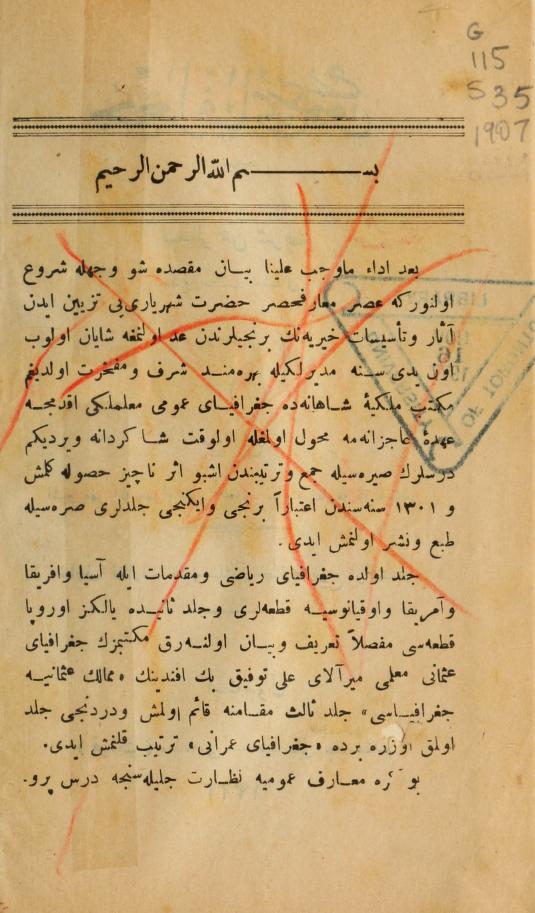 G
115
S35
1907
بسم الله الرحمن الرحيم
بعد اداء ماوجب علينا بيان مقصده شو وجهله شروع
اولنوركه عصر معارفحصر حضرت شهرياريى تزيين ايدن
آثار وتأسيسات خيريه‌نك برنجيلرندن عد اولنمغه شايان اولوب
اون يدى سنه مديرلكيله بهره‌مند شرف ومفخرت اولديغم
مكتب ملكيۀ شاهانه‌ده جغرافياى عمومى معلملكى اقدمجه
عهدۀ عاجزانه‌مه محول اولمغله اولوقت شاكردانه ويرديكم
درسلرك صيره‌سيله جمع وترتيبندن اشبو اثر ناچيز حصوله كلمش
و ١٣٠١ سنه‌سندن اعتباراً برنجى وايكنجى جلدلرى صره‌سيله
طبع ونشر اولنمش ايدى.
جلد اولده جغرافياى رياضى ومقدمات ايله آسيا وافريقا
وآمريقا واوقيانوسيه قطعه‌لرى وجلد ثانيده يالكز اوروپا
قطعه‌سى مفصلاً تعريف وبيان اولنه‌رق مكتبمزك جغرافياى
عثمانى معلمى ميرآلاى على توفيق بك افندينك «ممالك عثمانيه
جغرافياسى» جلد ثالث مقامنه قائم اولمش ودردنجى جلد
اولمق اوزره برده «جغرافياى عمرانى» ترتيب قلنمش ايدى.
بو كره معارف عموميه نظارت جليله‌سنجه درس پرو.